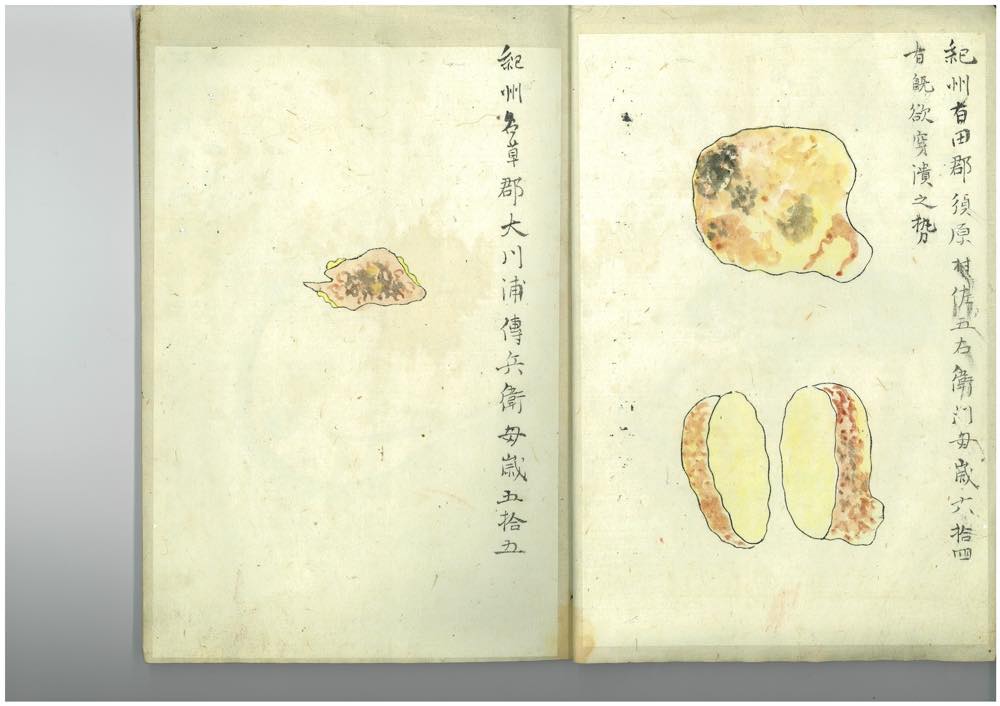 紀州有田郡須原村佐五右衛門母歳六拾四
有既欲穿潰之勢
紀州名草郡大川浦傳兵衛母歳五拾五